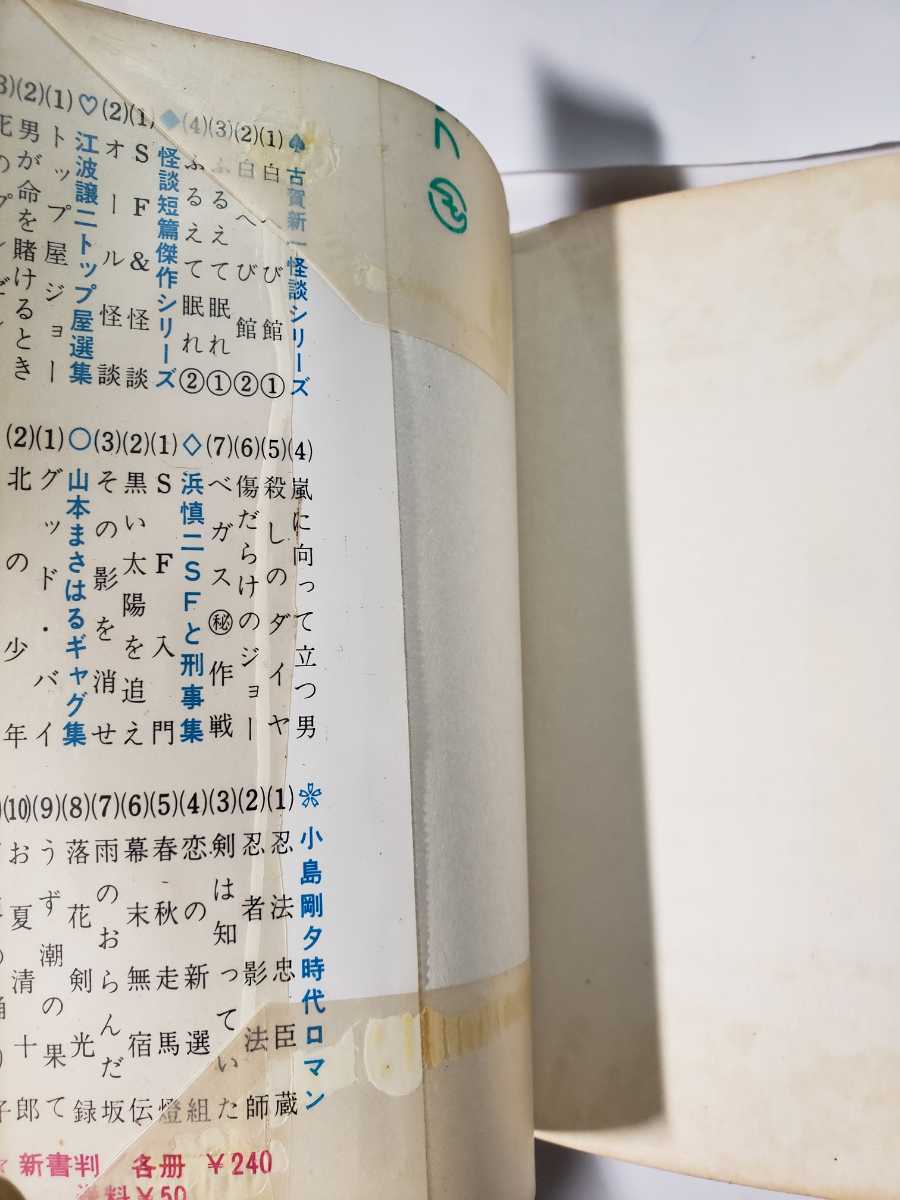 ♠古賀新一怪談シリーズ
(1)白へび館①
(2)白へび館②
(3)ふるえて眠れ①
(4)ふるえて眠れ②
◆怪談短篇傑作シリーズ
(1)SF&怪談
(2)オール怪談
♡江波譲二トップ屋選集
(1)トップ屋ジョー
(2)男が命を賭けるとき
(4)嵐に向って立つ男
(5)殺しのダイヤ
(6)傷だらけのジョー
(7)ベガス㊙作戦
◇浜慎二SFと刑事集
(1)SF入門
(2)黒い太陽を追え
(3)その影を消せ
○山本まさはるギャグ集
(1)グッド・バイ
(2)北の少年
小島剛夕時代ロマン
(1)忍法忠臣蔵
(2)忍者影法師
(3)剣は知っていた
(4)恋の新選組
(5)春秋走馬燈
(6)幕末無宿伝
(7)雨のおらんだ坂
(8)落花剣光録
(9)うず潮の果て
(10)お夏清十郎
☆新書判 各冊 ¥240
送料¥50